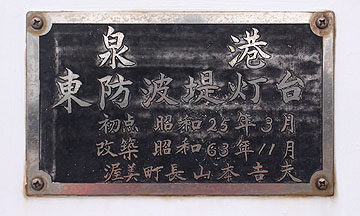 泉港
東防波堤灯台
初点 昭和25年3月
改築 昭和63年11月
渥美町長山本吉夫